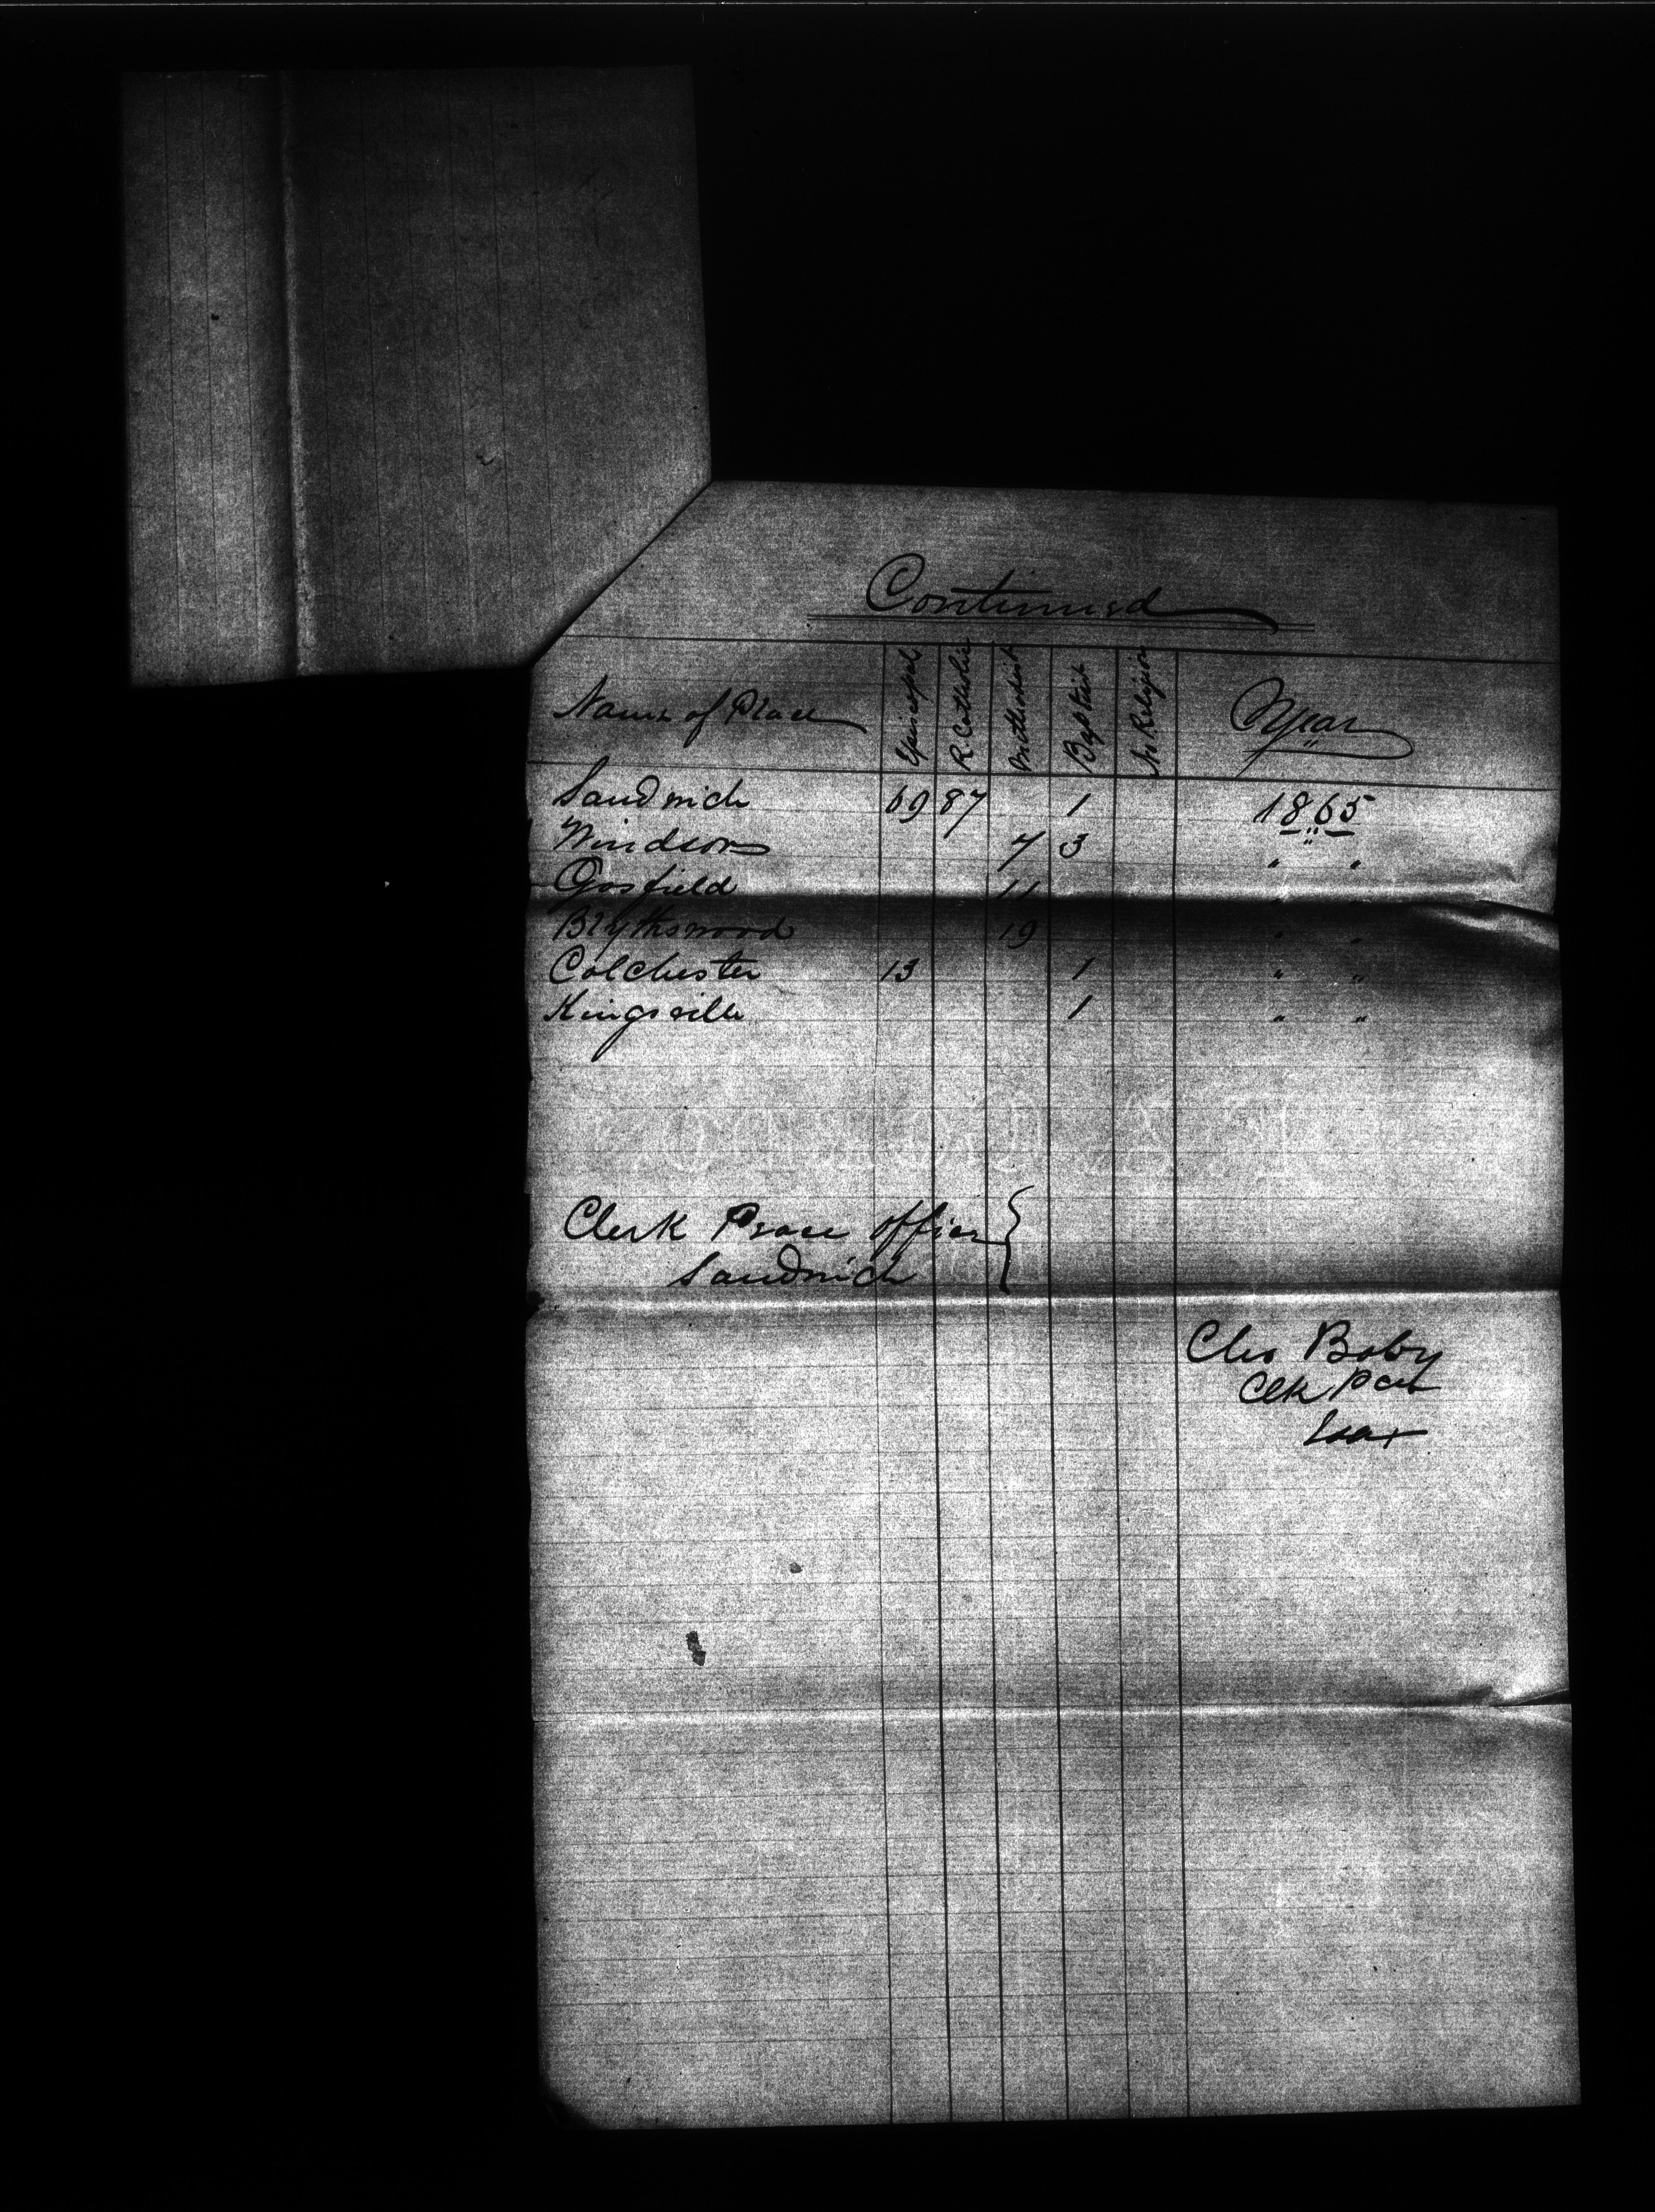 Continued
Name of Place Episcopal R. Catholic Methodist Baptist No Religion Year
Sandwich 69 87 1 1865
Windsor 7 3 " "
Gosfield 11 " "
Blythswood 19 " "
Colchester 13 1 " "
Kingsville 1 " "
Clerk Peace Office
Sandwich
Chs Baby
Clk Peace
Essex